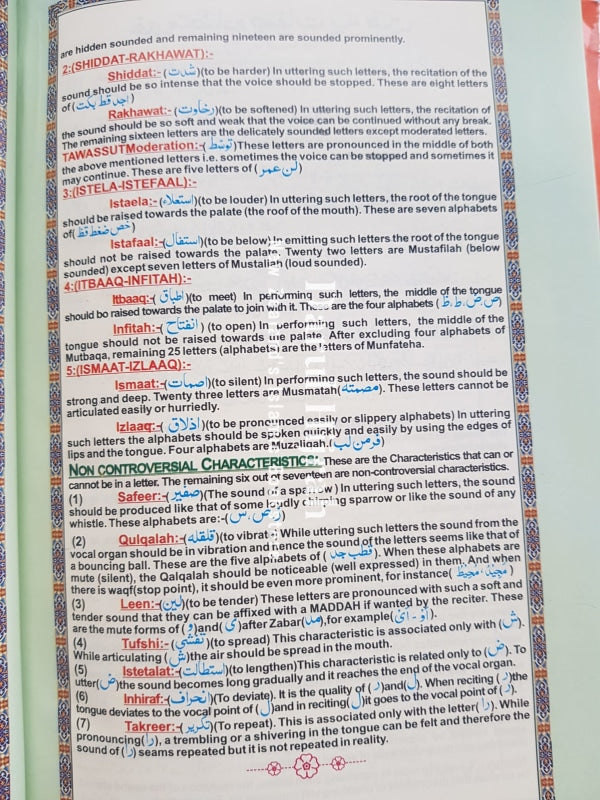 are hidden sounded and remaining nineteen are sounded prominently.
2:(SHIDDAT-RAKHAWAT):-
Shiddat:- (شدت)(to be harder) In uttering such letters, the recitation of the
sound should be so intense that the voice should be stopped. These are eight letters
of (اجد قط بکت)
Rakhawat:- (رخاوت)(to be softened) In uttering such letters, the recitation of
the sound should be so soft and weak that the voice can be continued without any break.
The remaining sixteen letters are the delicately sounded letters except moderated letters.
TAWASSUTModeration:-(توسّط)These letters are pronounced in the middle of both
the above mentioned letters i.e. sometimes the voice can be stopped and sometimes it
may continue. These are five letters of (لن عمر)
3:(ISTELA-ISTEFAAL):-
Istaela:-(استعلاء)(to be louder) In uttering such letters, the root of the tongue
should be raised towards the palate (the roof of the mouth). These are seven alphabets
of(خص ضغط قظ)
Istafaal:-(استفال)(to be below) In emitting such letters the root of the tongue
should not be raised towards the palate. Twenty two letters are Mustafilah (below
sounded) except seven letters of Mustaliah (loud sounded).
4:(ITBAAQ-INFITAH):-
Itbaaq:-(اطباق)(to meet) In performing such letters, the middle of the tongue
should bo raised towards the palate to join with it. These are the four alphabets (ص،ض،ط،ظ)
Infitah:-(انفتاح) (to open) In performing such letters, the middle of the
tongue should not be raised towards the palate. After excluding four alphabets of
Mutbaqa, remaining 25 letters (alphabets) are the letters of Munfateha.
5:(ISMAAT-IZLAAQ):-
Ismaat:-(اصمات)(to silent) In performing such letters, the sound should be
strong and deep. Twenty three letters are Musmatah(مصمتہ). These letters cannot be
articulated easily or hurriedly.
Izlaaq:-(اذلاق)(to be pronounced easily or slippery alphabets) In uttering
such letters the alphabets should be spoken quickly and easily by using the edges of
lips and the tongue. Four alphabets are Muzaliqah.(فر من لب)
NON CONTROVERSIAL CHARACTERISTICS: These are the Characteristics that can or
cannot be in a letter. The remaining six out of seventeen are non-controversial characteristics.
(1) Safeer:-(صفیر)(The sound of a sparrow) In uttering such letters, the sound
should be produced like that of some loudly chirping sparrow or like the sound of any
whistle. These alphabets are:-(ز،ص،س)
(2) Qulqalah:-(قلقلہ)(to vibrate) While uttering such letters the sound from the
vocal organ should be in vibration and hence the sound of the letters seems like that of
a bouncing ball. These are the five alphabets of (قطب جد). When these alphabets are
mute (silent), the Qalqalah should be noticeable (well expressed) in them. And when
there is waqf(stop point), it should be even more prominent, for instance(مجید،محیط)
(3) Leen:-(لین)(to be tender) These letters are pronounced with such a soft and
tender sound that they can be affixed with a MADDAH if wanted by the reciter. These
are the mute forms of (و)and(ی)after Zabar(مد),for example(اَوْ - اَیْ).
(4) Tufshi:-(تفشّی)(to spread) This characteristic is associated only with (ش).
While articulating (ش)the air should be spread in the mouth.
(5) Istetalat:-(استطالت)(to lengthen)This characteristic is related only to (ض). To
utter(ض)the sound becomes long gradually and it reaches the end of the vocal organ.
(6) Inhiraf:-(انحراف)(To deviate). It is the quality of (ر)and(ل). When reciting (ر)the
tongue deviates to the vocal point of (ل)and in reciting(ل)it goes to the vocal point of (ر).
(7) Takreer:-(تکریر)(To repeat). This is associated only with the letter(را). While
pronouncing(را), a trembling or a shivering in the tongue can be felt and therefore the
sound of (را) seams repeated but it is not repeated in reality.